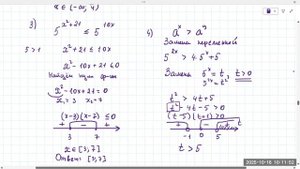 x ∈ (-∞, 4)
3) 5^(x²+21) ≤ 5^(10x)
5 > 1 x² + 21 ≤ 10x
x² - 10x + 21 ≤ 0
Найдём корни ур-ния
x² - 10x + 21 = 0
x₁ = 3 x₂ = 7
(x-3)(x-7) ≤ 0
+ - +
3 7
x ∈ [3, 7]
Ответ: [3, 7]
4) aˣ > aⁿ
Замена переменной
5^(2x) > 4·5ˣ + 5
Замена 5ˣ = t, t > 0
5^(2x) = t²
t² > 4t + 5
t² - 4t - 5 > 0
(t-5)(t+1) > 0
+ - +
-1 0 5
t > 5
2025-10-16 10:11:02